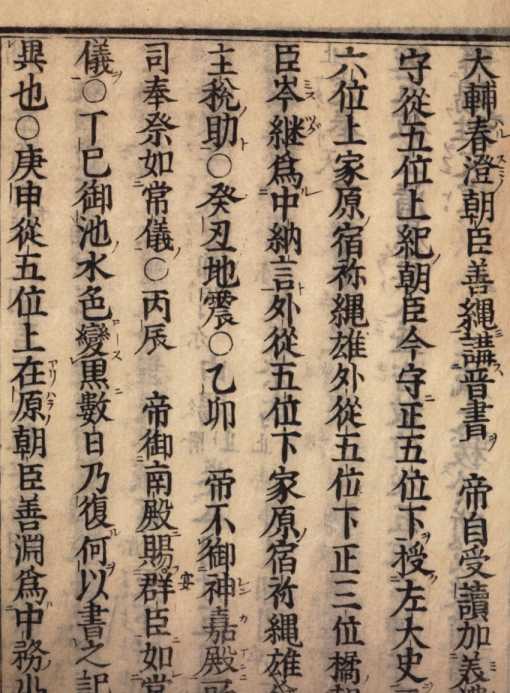 大輔春澄朝臣善縄講晋書 帝自受讀加義
守從五位上紀朝臣今守正五位下授左大史
六位上家原宿祢縄雄外從五位下正三位橘
臣岑継爲中納言外從五位下家原宿祢縄雄
主稅助○癸丑地震○乙卯 帝不御神嘉殿
司奉祭如常儀○丙辰 帝御南殿賜宴群臣如常
儀○丁巳御池水色變黒數日乃復何以書之記
異也○庚申從五位上在原朝臣善淵爲中務少